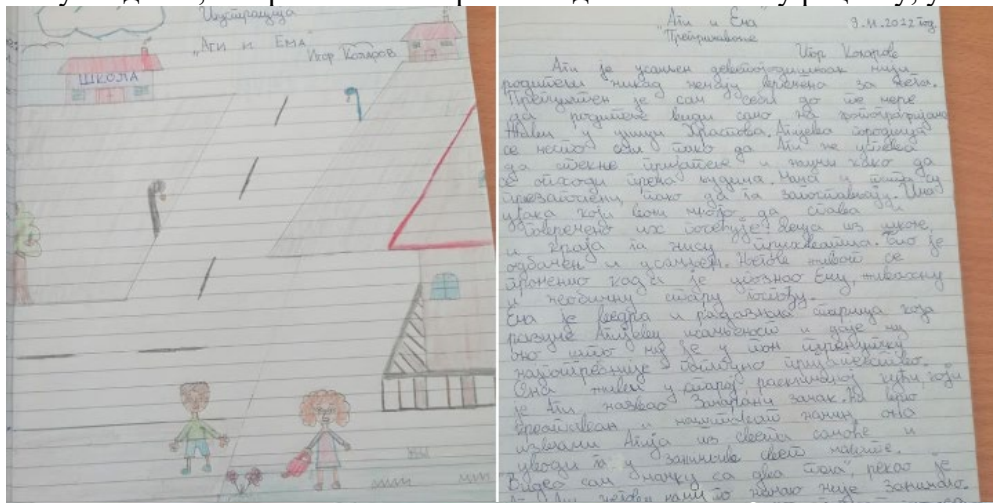 Илустрација
„Аги и Ема“
Игор Коларов
ШКОЛА
„Аги и Ема“ 9.11.2022 год.
Препричавање
Игор Коларов
Аги је усамљен деветогодишњак чији
родитељи никад немају времена за њега.
Препуштен је сам себи до те мере
да родитеље види само на фотографијама.
Живи у улици Храстова. Агијева породица
се често сели тако да Аги не успева
да стекне пријатеље и научи како да
се опходи према људима. Мама и тата су
презапослени, тако да га запостављају. Има
ујака који воли много да спава и
повремено их посећује. Деца из школе,
и краја га нису прихватила. Био је
одбачен и усамљен. Његов живот се
променио када је упознао Ему, живахну
и необичну стару госпођу.
Ема је ведра и радознала старица која
разуме Агијеву усамљеност и даје му
оно што му је у том тренутку
најпотребније - пријатељство.
Она живи у старој, раскошној кући коју
је Аги назвао Зачарани замак. На врло
креативан и начин она
извлачи Агија из света самоће и
уводи га у занимљив свет маште.
"Видео сам мачку са два репа", рекао је